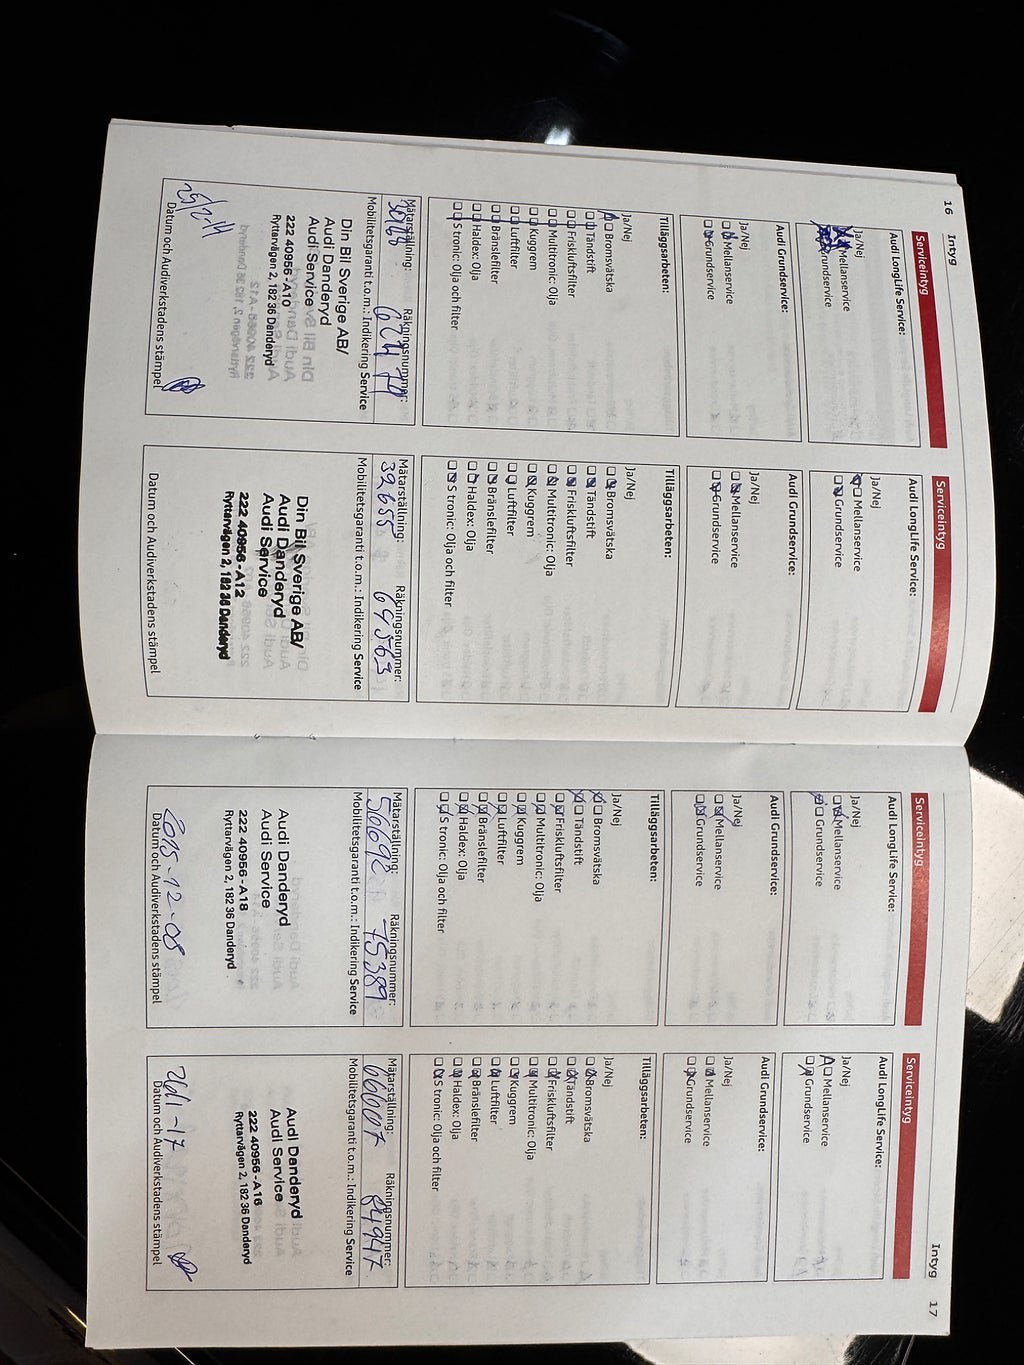 16
Intyg
Serviceintyg
Audi LongLife Service:
Ja/Nej
Mellanservice
Grundservice
Audi Grundservice:
Ja/Nej
Mellanservice
Grundservice
Tilläggsarbeten:
Ja/Nej
Bromsvätska
Tändstift
Friskluftsfilter
Multitronic: Olja
Kuggrem
Luftfilter
Bränslefilter
Haldex: Olja
S tronic: Olja och filter
Mätarställning: Räkningsnummer:
Mobilitetsgaranti t.o.m.: Indikering Service
Din Bil Sverige AB/
Audi Danderyd
Audi Service
222 40956 - A10
Ryttarvägen 2, 182 36 Danderyd
Datum och Audiverkstadens stämpel
Serviceintyg
Audi LongLife Service:
Ja/Nej
Mellanservice
Grundservice
Audi Grundservice:
Ja/Nej
Mellanservice
Grundservice
Tilläggsarbeten:
Ja/Nej
Bromsvätska
Tändstift
Friskluftsfilter
Multitronic: Olja
Kuggrem
Luftfilter
Bränslefilter
Haldex: Olja
S tronic: Olja och filter
Mätarställning: Räkningsnummer:
39655 69563
Mobilitetsgaranti t.o.m.: Indikering Service
Din Bil Sverige AB/
Audi Danderyd
Audi Service
222 40956 - A12
Ryttarvägen 2, 182 36 Danderyd
Datum och Audiverkstadens stämpel
Serviceintyg
Audi LongLife Service:
Ja/Nej
Mellanservice
Grundservice
Audi Grundservice:
Ja/Nej
Mellanservice
Grundservice
Tilläggsarbeten:
Ja/Nej
Bromsvätska
Tändstift
Friskluftsfilter
Multitronic: Olja
Kuggrem
Luftfilter
Bränslefilter
Haldex: Olja
S tronic: Olja och filter
Mätarställning: Räkningsnummer:
50698 75389
Mobilitetsgaranti t.o.m.: Indikering Service
Audi Danderyd
Audi Service
222 40956 - A18
Ryttarvägen 2, 182 36 Danderyd
2015-12-08
Datum och Audiverkstadens stämpel
Intyg
17
Serviceintyg
Audi LongLife Service:
Ja/Nej
Mellanservice
Grundservice
Audi Grundservice:
Ja/Nej
Mellanservice
Grundservice
Tilläggsarbeten:
Ja/Nej
Bromsvätska
Tändstift
Friskluftsfilter
Multitronic: Olja
Kuggrem
Luftfilter
Bränslefilter
Haldex: Olja
S tronic: Olja och filter
Mätarställning: Räkningsnummer:
66007 84947
Mobilitetsgaranti t.o.m.: Indikering Service
Audi Danderyd
Audi Service
222 40956 - A16
Ryttarvägen 2, 182 36 Danderyd
26/1-17
Datum och Audiverkstadens stämpel